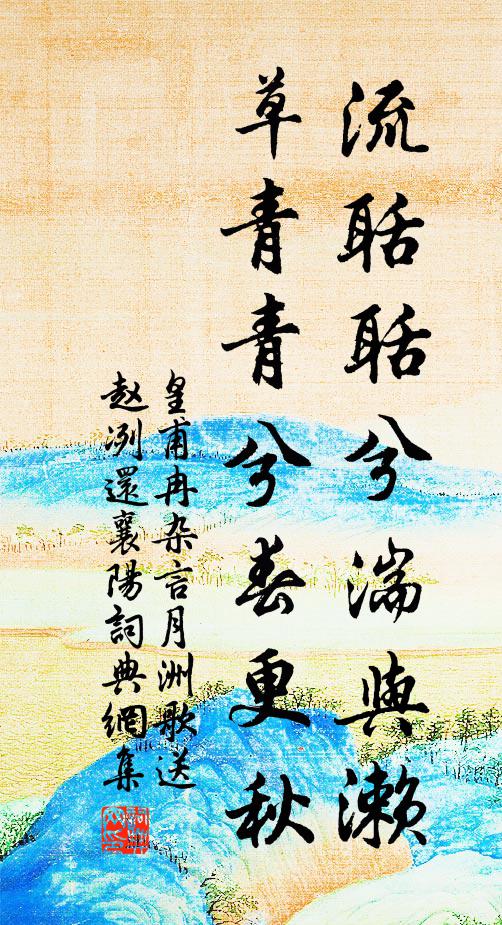 流聒聒兮湍與瀨
草青青兮春更秋
皇甫冉杂言月洲歌送
赵冽還襄陽詞典網集